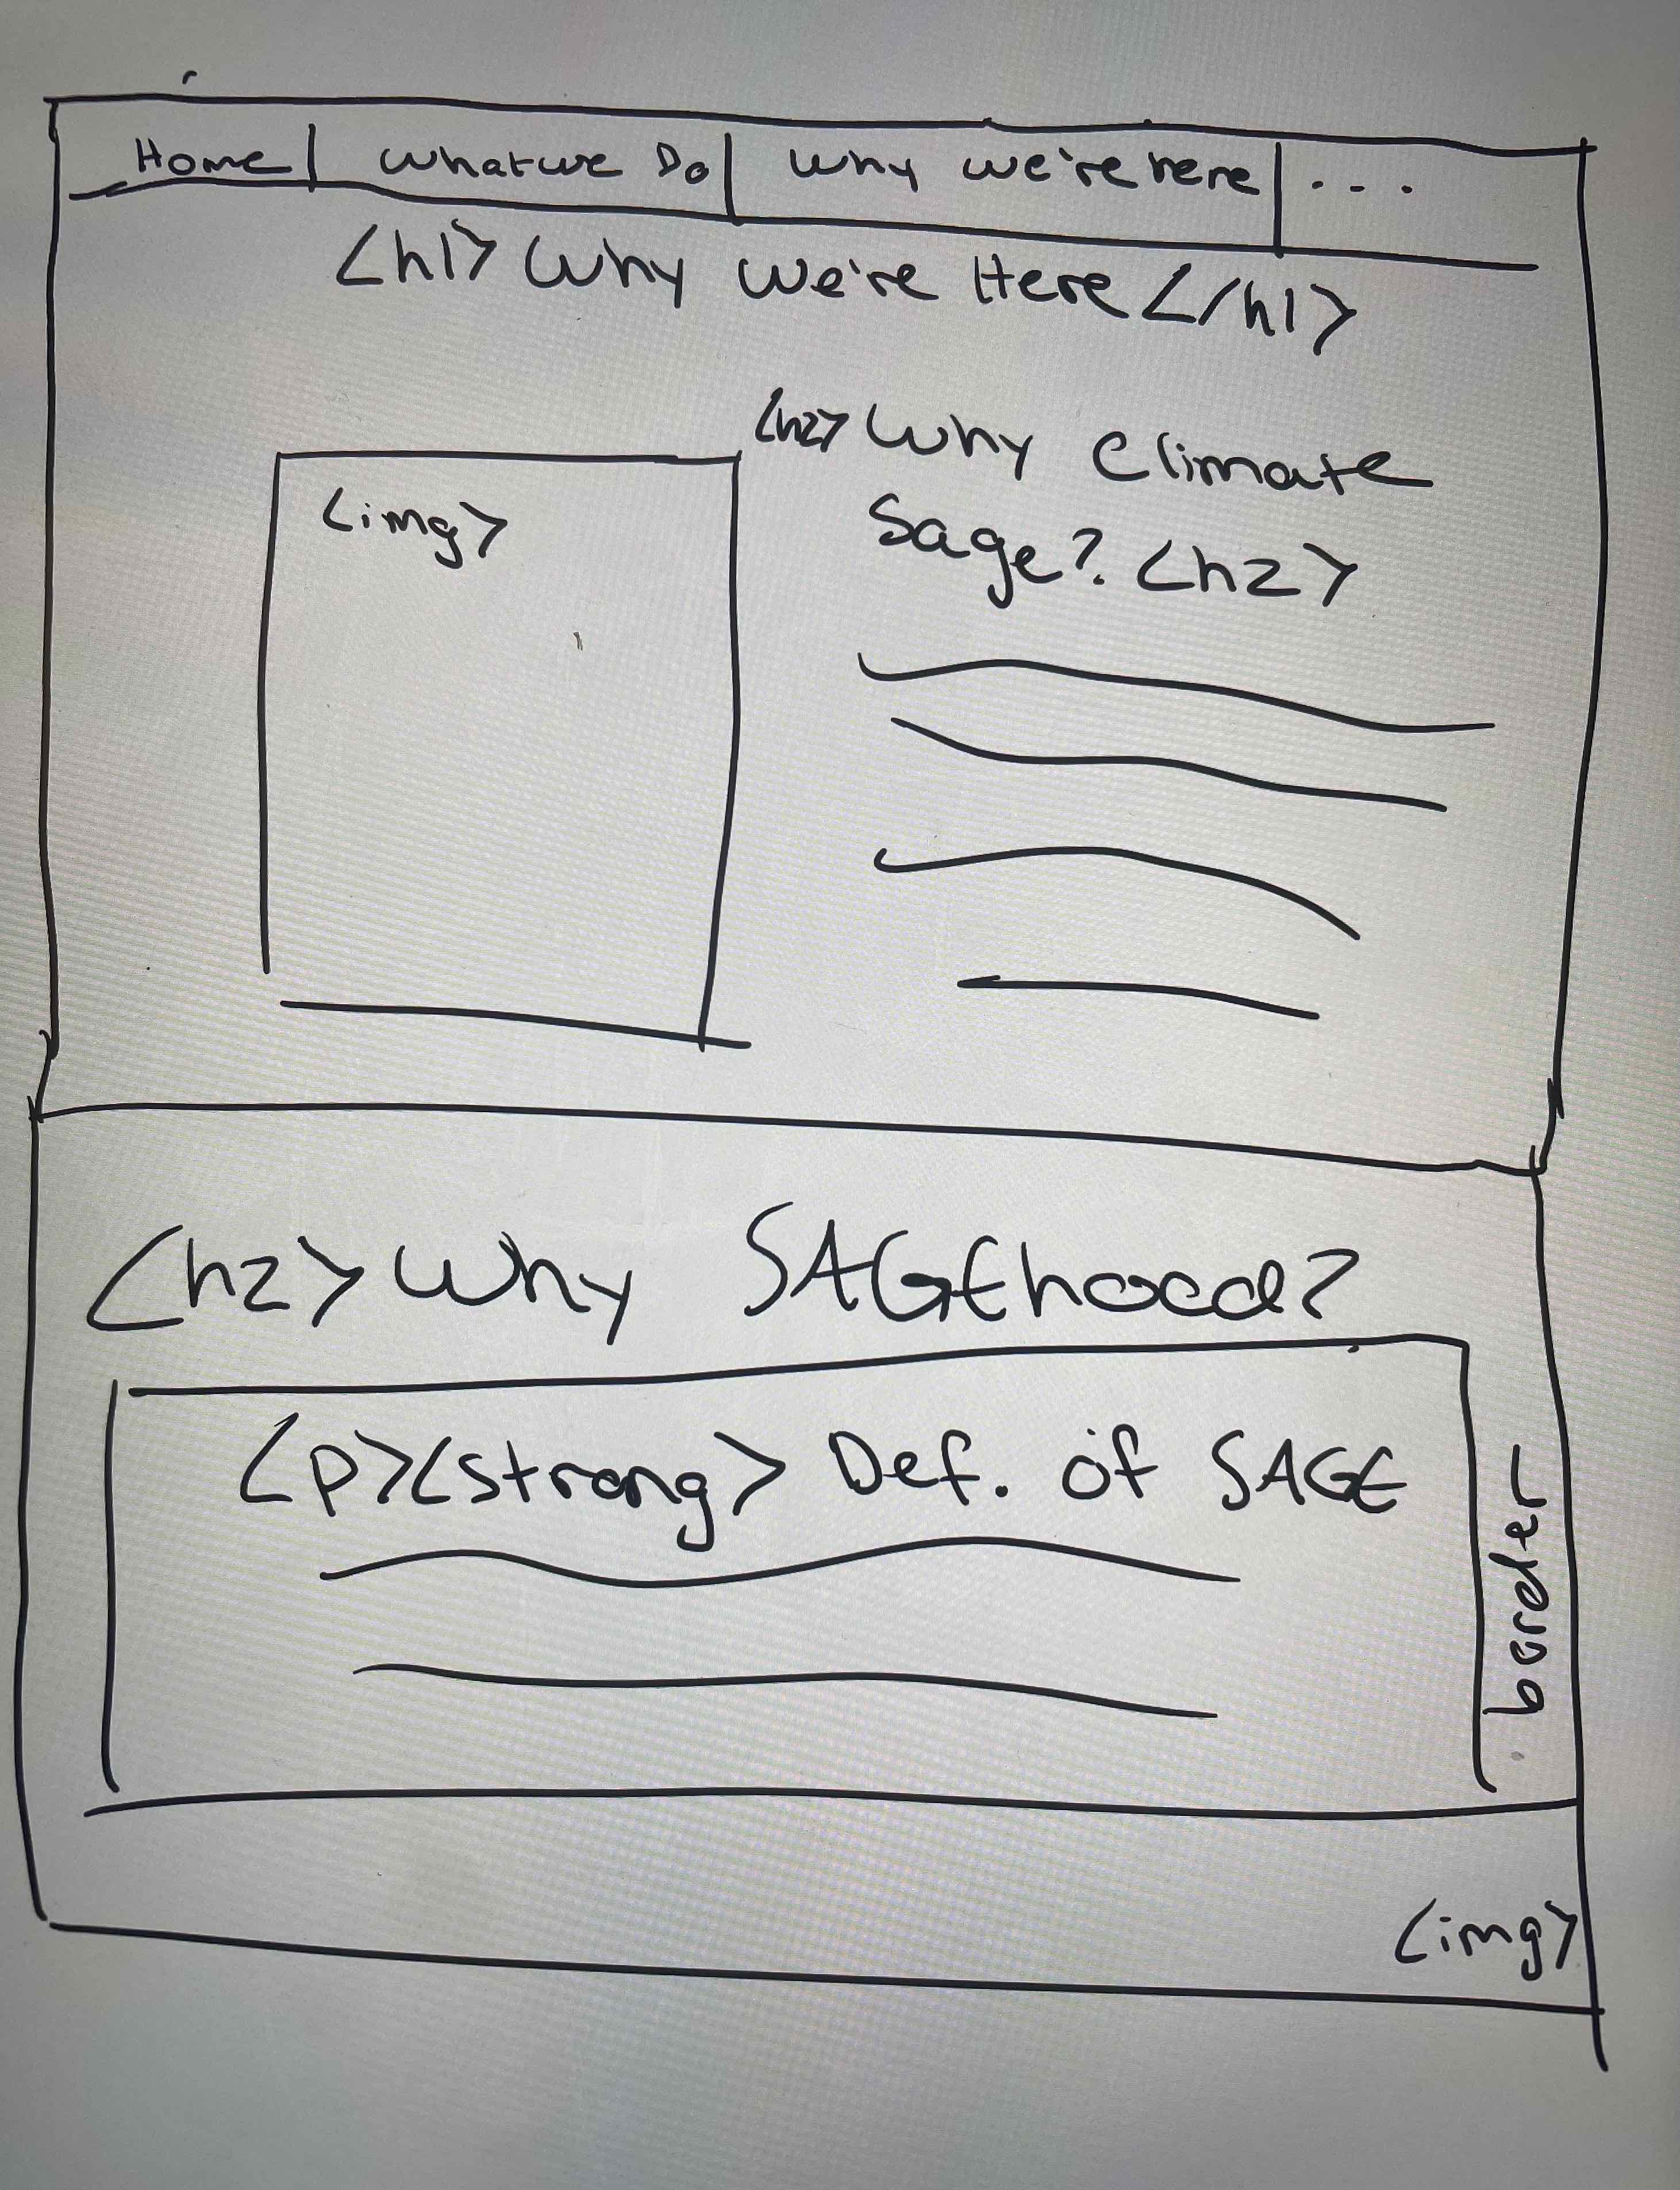 Home | What we Do | Why we're here | ...
<h1> Why We're Here </h1>
<h2> Why Climate
Sage? <h2>
<img>
<h2> Why SAGEhood?
<p><strong> Def. of SAGE
border
<img>